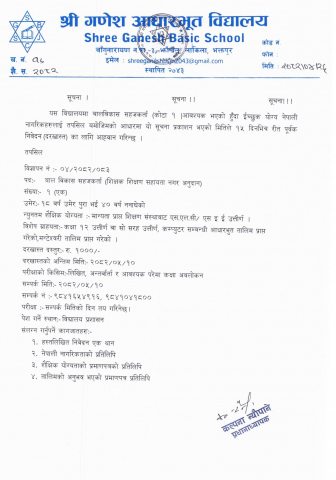 श्री गणेश आधारभूत विद्यालय
Shree Ganesh Basic School
चाँगुनारायण न.पा.-३, भक्तपुर
इमेल : shreeganesh2043@gmail.com
स्थापित २०४३
कोड नं :
फोन :
मिति : २०८२/०४/२६
प. सं. १६
शै. स. २०८२
सूचना । सूचना !! सूचना !!!
यस विद्यालयमा बालविकास सहजकर्ता (कोटा १ )आवश्यक भएको हुँदा ईच्छुक योग्य नेपाली
नागरिकहरुलाई तपसिल बमोजिमको आधारमा यो सूचना प्रकाशन भएको मितिले १५ दिनभित्र रीत पूर्वक
निवेदन(दरखास्त) का लागि आह्वान गरिन्छ ।
तपसिल
विज्ञापन नं :- ०४/२०८२/०८३
पद:- बाल विकास सहजकर्ता (शिक्षक शिक्षण सहायता नगर अनुदान)
संख्या:- १ (एक)
उमेर:- १८ वर्ष उमेर पुरा भई ४० वर्ष ननाघेको
न्युनतम शैक्षिक योग्यता :- मान्यता प्राप्त शिक्षण संस्थाबाट एस.एल.सी/ एस इ ई उत्तीर्ण ।
विशेष ग्राह्यता:-कक्षा १२ उत्तीर्ण वा सो सरह उत्तीर्ण, कम्प्युटर सम्बन्धी आधारभुत तालिम प्राप्त
गरेको,मन्टेश्वरी तालिम प्राप्त गरेको ।
दरखास्त दस्तुर:- रु. १०००/-
दरखास्तको अन्तिम मिति:- २०८२/०५/१०
परीक्षाको किसिम:-लिखित, अन्तर्वार्ता र आवश्यक परेमा कक्षा अवलोकन
सम्पर्क मिति:- २०८२/०५/१०
सम्पर्क नं :- ९८४१६५४९१६, ९८४१०४१८००
परीक्षा :- सम्पर्क मितिको दिन तय गरिनेछ।
पेश गर्ने स्थान:- विद्यालय प्रशासन
संलग्न गर्नुपर्ने कागजातहरु:-
१. हस्तलिखित निवेदन एक थान
२. नेपाली नागरिकताको प्रतिलिपि
३. शैक्षिक योग्यताको प्रमाणपत्रको प्रतिलिपि
४. तालिमको अनुभव भएको प्रमाणपत्र प्रतिलिपि
कल्पना न्यौपाने
प्रधानाध्यापक